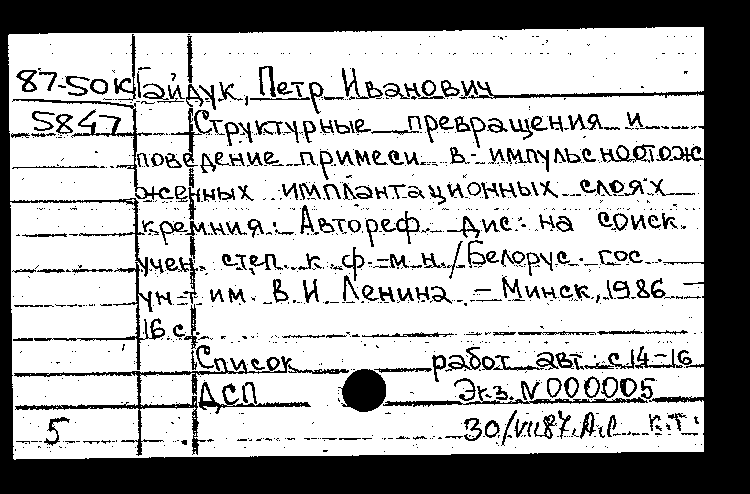 87-50К Гайдук, Петр Иванович
5847 Структурные превращения и
поведение примеси в импульсноотож
женных имплантационных слоях
кремния: Автореф. дис. на соиск.
учен. степ. к. ф.-м. н. / Белорус. гос.
ун-т им. В. И. Ленина. - Минск, 1986 -
16 с.
Список работ авт.: с 14-16
ДСП Экз. N 000005
5 30/VII 87. А.Л К.Т.